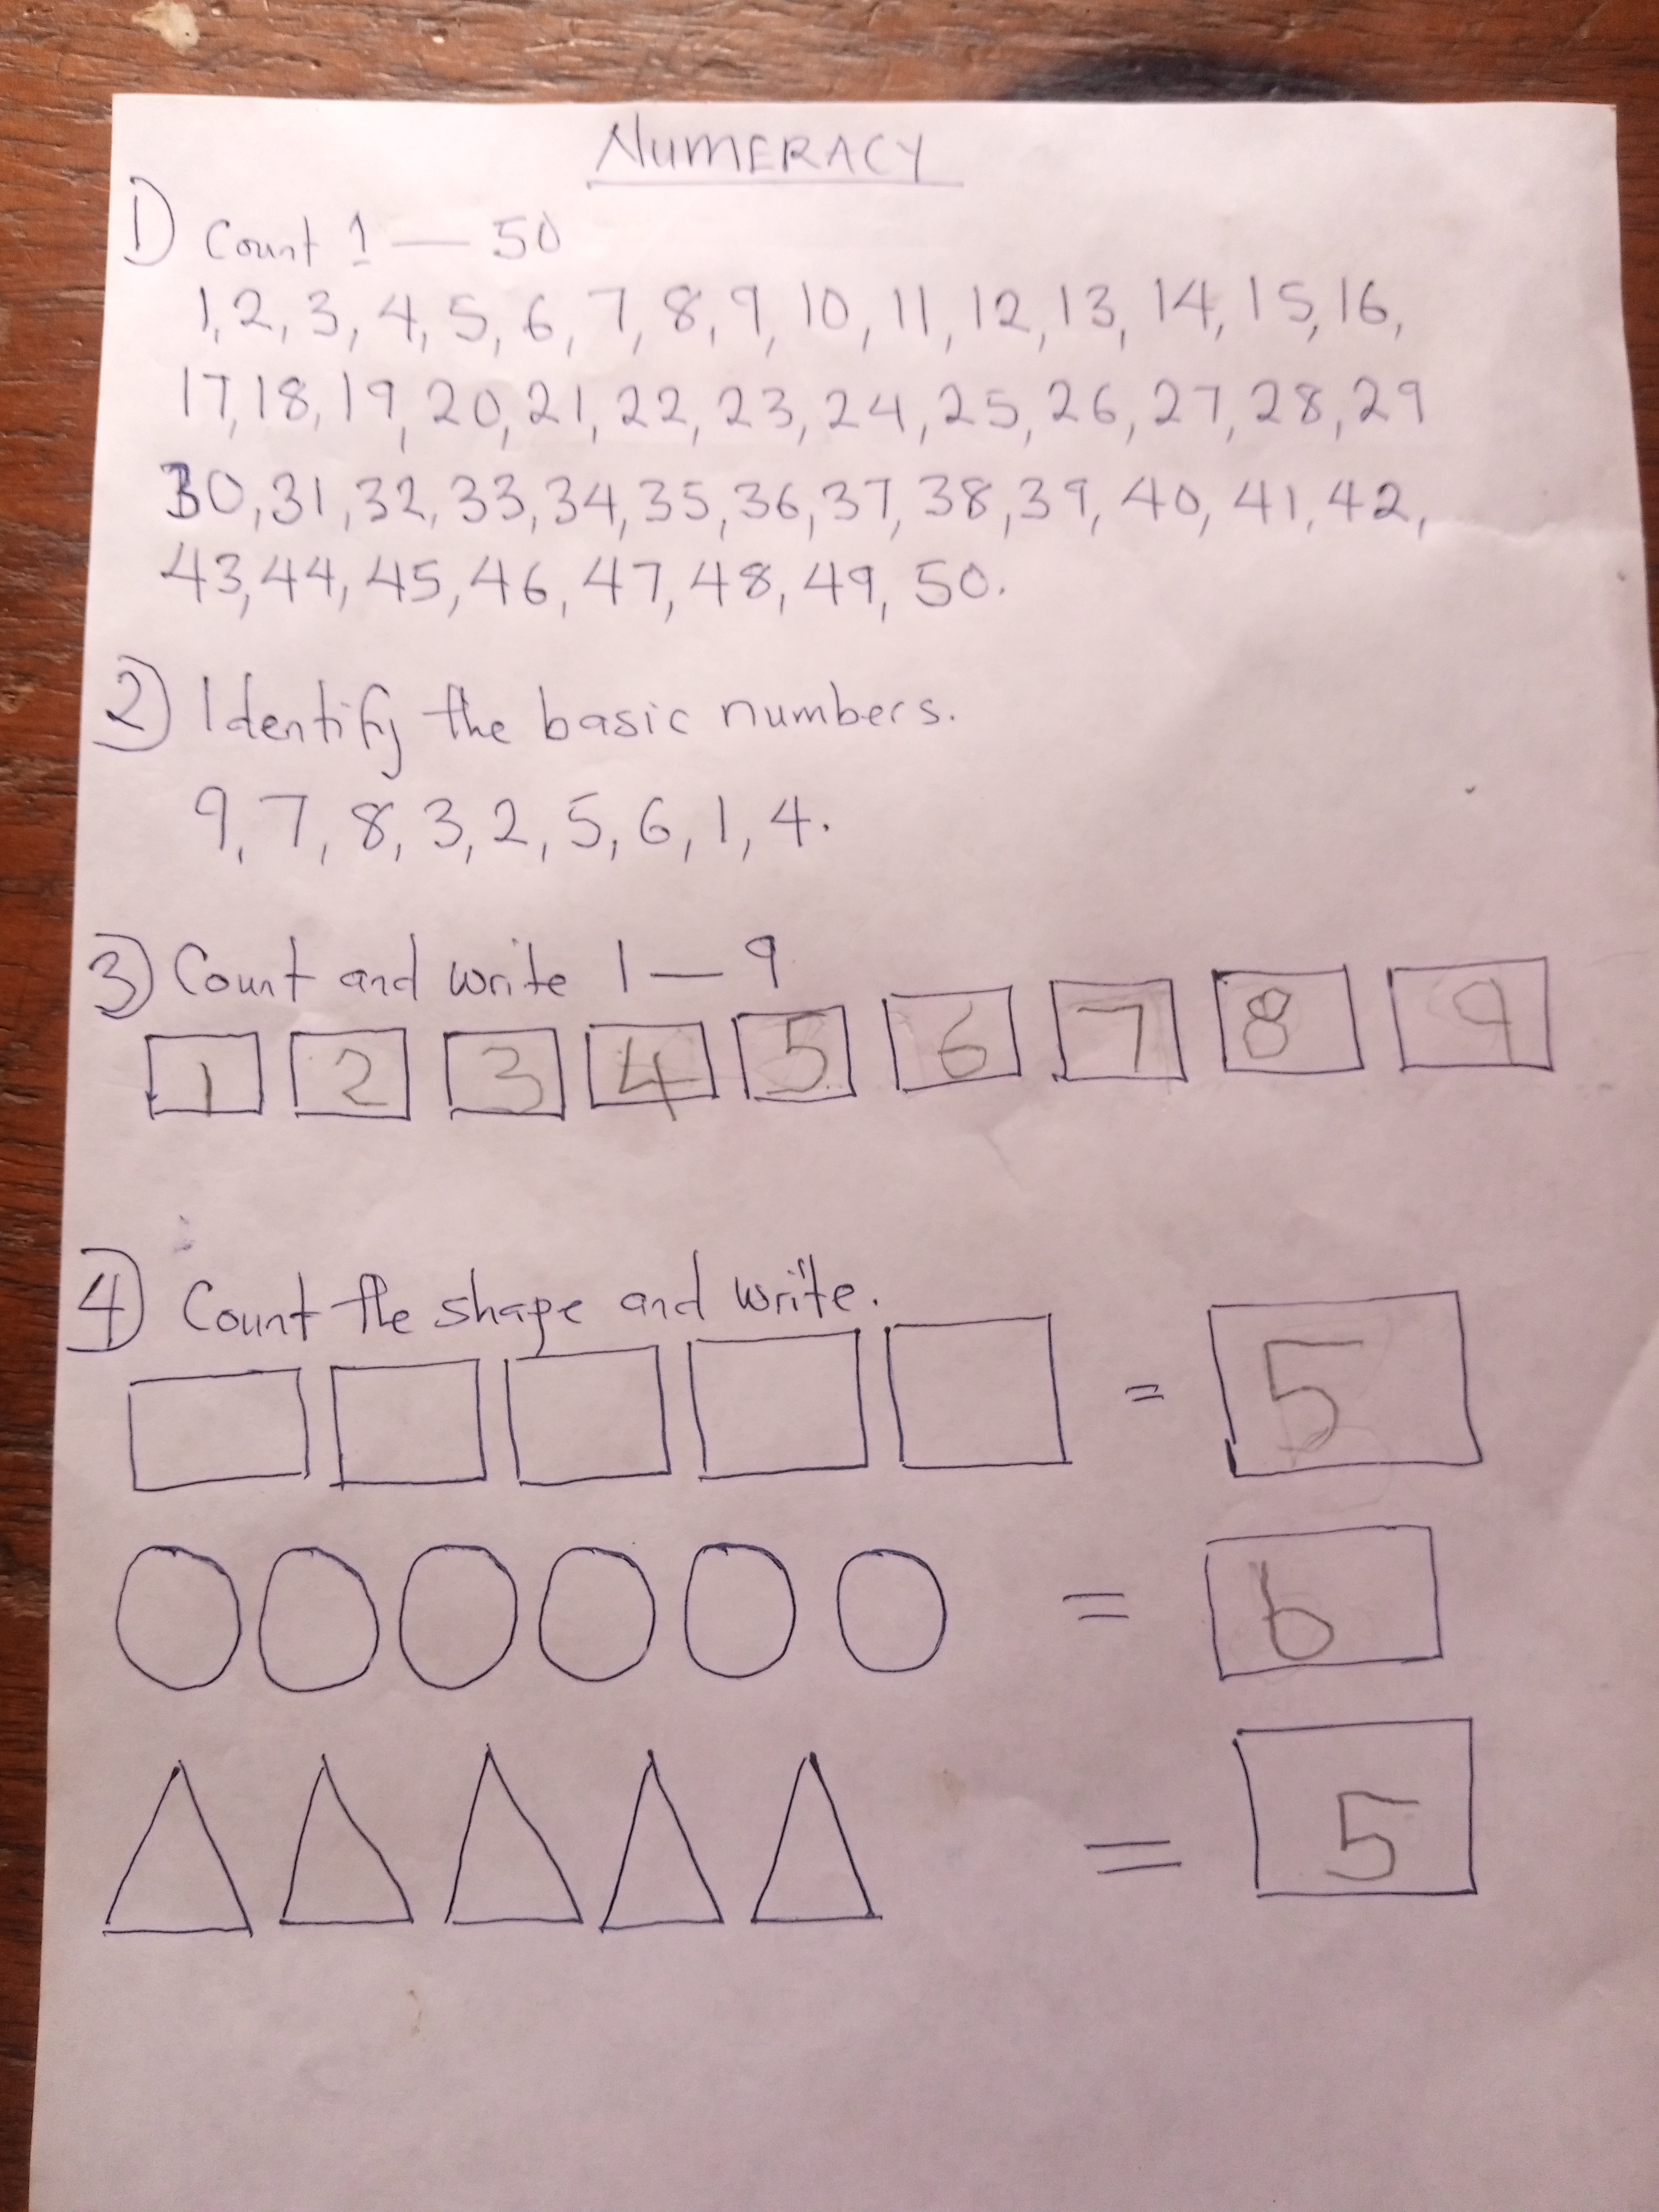 NUMERACY
1) Count 1 — 50
1, 2, 3, 4, 5, 6, 7, 8, 9, 10, 11, 12, 13, 14, 15, 16,
17, 18, 19, 20, 21, 22, 23, 24, 25, 26, 27, 28, 29
30, 31, 32, 33, 34, 35, 36, 37, 38, 39, 40, 41, 42,
43, 44, 45, 46, 47, 48, 49, 50.
2) Identify the basic numbers.
9, 7, 8, 3, 2, 5, 6, 1, 4.
3) Count and write 1 — 9
1 2 3 4 5 6 7 8 9
4) Count the shape and write.
= 5
= 6
= 5